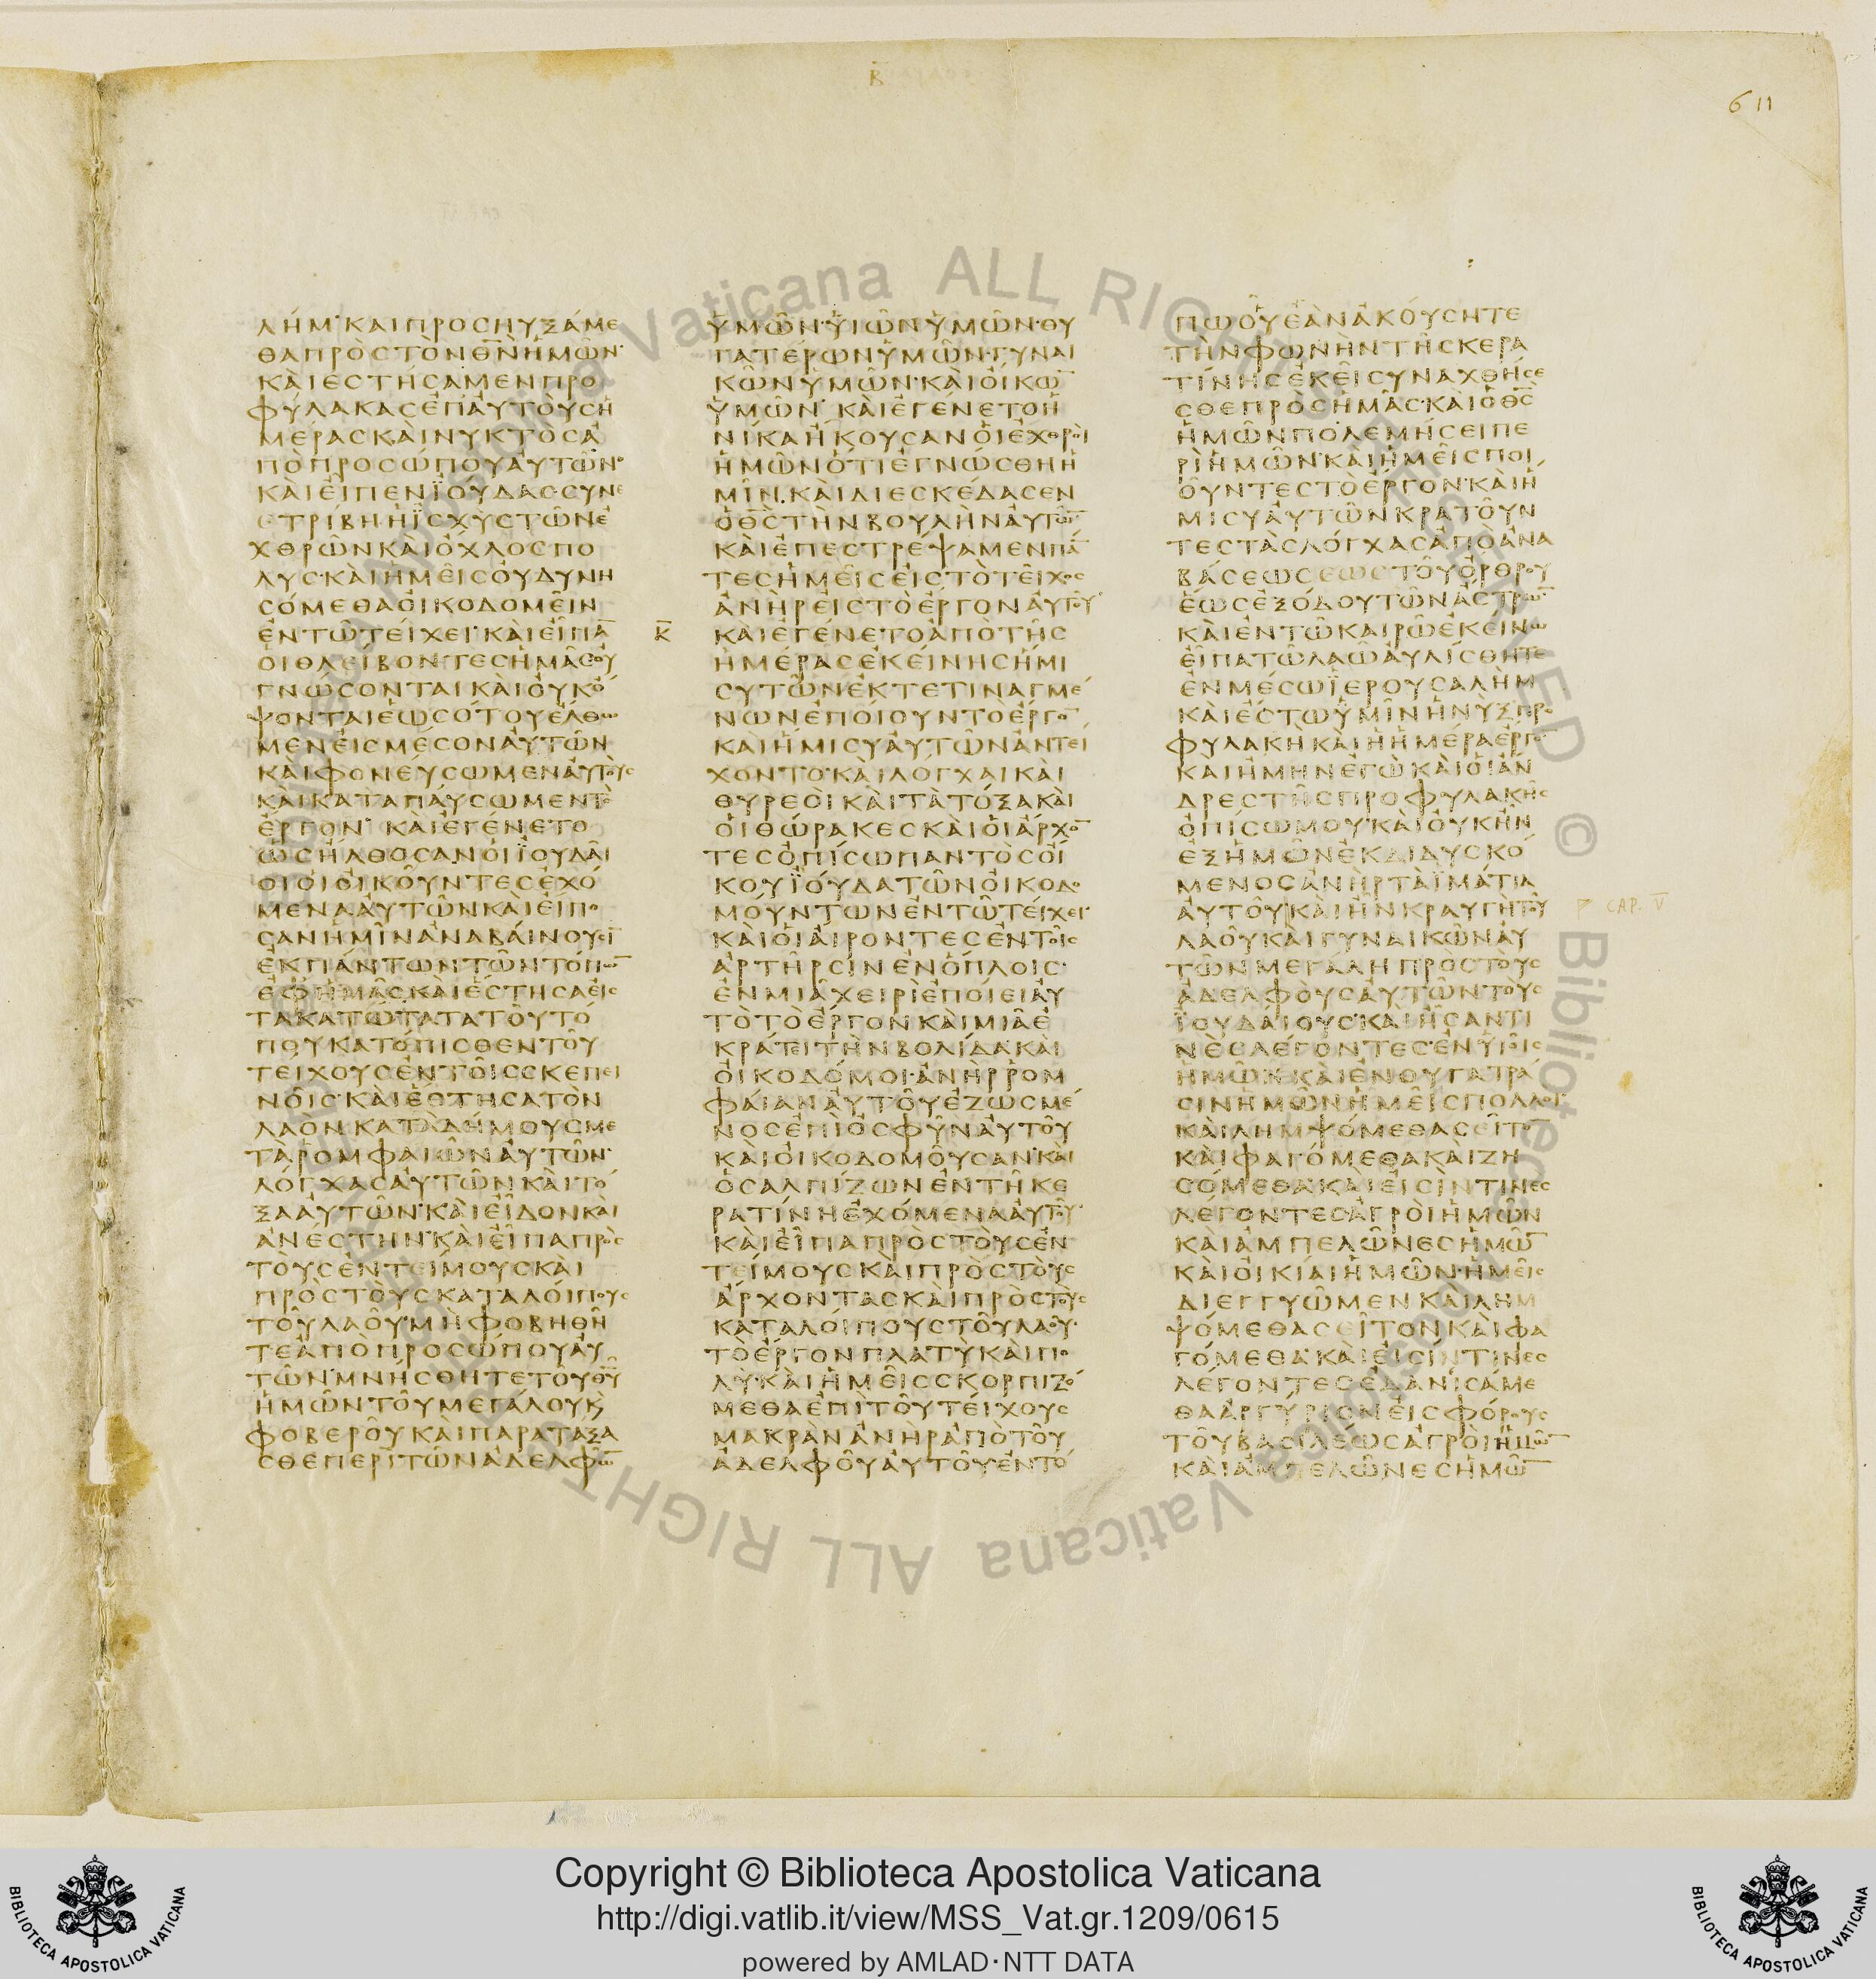 Β
611
ΛΗΜ ΚΑΙ ΠΡΟCΗΥΞΑΜΕ
ΘΑ ΠΡΟC ΤΟΝ ΘΝ ΗΜΩΝ
ΚΑΙ ΕCΤΗCΑΜΕΝ ΠΡΟ
ΦΥΛΑΚΑC ΕΠ ΑΥΤΟΥC Η
ΜΕΡΑC ΚΑΙ ΝΥΚΤΟC Α
ΠΟ ΠΡΟCΩΠΟΥ ΑΥΤΩΝ
ΚΑΙ ΕΙΠΕΝ ΪΟΥΔΑC CΥΝΕ
ΤΡΙΒΗ Η ΪCΧΥC ΤΩΝ Ε
ΧΘΡΩΝ ΚΑΙ Ο ΧΛΟC ΠΟ
ΛΥC ΚΑΙ ΗΜΕΙC ΟΥ ΔΥΝΗ
CΟΜΕΘΑ ΟΙΚΟΔΟΜΕΙΝ
ΕΝ ΤΩ ΤΕΙΧΕΙ ΚΑΙ ΕΙΠΑ̅
ΟΙ ΘΛΕΙΒΟΝΤΕC ΗΜΑC ΟΥ
ΓΝΩCΟΝΤΑΙ ΚΑΙ ΟΥΚ Ο
ΨΟΝΤΑΙ ΕΩC ΟΤΟΥ ΕΛΘΩ
ΜΕΝ ΕΙC ΜΕCΟΝ ΑΥΤΩΝ
ΚΑΙ ΦΟΝΕΥCΩΜΕΝ ΑΥΤΟΥC
ΚΑΙ ΚΑΤΑΠΑΥCΩΜΕΝ ΤΟ
ΕΡΓΟΝ ΚΑΙ ΕΓΕΝΕΤΟ
ΩC ΗΛΘΟCΑΝ ΟΙ ΪΟΥΔΑΙ
ΟΙ ΟΙ ΟΙΚΟΥΝΤΕC ΕΧΟ
ΜΕΝΑ ΑΥΤΩΝ ΚΑΙ ΕΙΠΟ
CΑΝ ΗΜΙΝ ΑΝΑΒΑΙΝΟΥCΙ̅
ΕΚ ΠΑΝΤΩΝ ΤΩΝ ΤΟΠΩ̅
ΕΦ ΗΜΑC ΚΑΙ ΕCΤΗCΑ ΕΙC
ΤΑ ΚΑΤΩΤΑΤΑ ΤΟΥ ΤΟ
ΠΟΥ ΚΑΤΟΠΙCΘΕΝ ΤΟΥ
ΤΕΙΧΟΥC ΕΝ ΤΟΙC CΚΕΠΕΙ
ΝΟΙC ΚΑΙ ΕCΤΗCΑ ΤΟΝ
ΛΑΟΝ ΚΑΤΑ ΔΗΜΟΥC ΜΕ
ΤΑ ΡΟΜΦΑΙΩΝ ΑΥΤΩΝ
ΛΟΓΧΑC ΑΥΤΩΝ ΚΑΙ ΤΟ
ΞΑ ΑΥΤΩΝ ΚΑΙ ΕΙΔΟΝ ΚΑΙ
ΑΝΕCΤΗΝ ΚΑΙ ΕΙΠΑ ΠΡΟC
ΤΟΥC ΕΝΤΕΙΜΟΥC ΚΑΙ
ΠΡΟC ΤΟΥC ΚΑΤΑΛΟΙΠΟΥC
ΤΟΥ ΛΑΟΥ ΜΗ ΦΟΒΗΘΗ
ΤΕ ΑΠΟ ΠΡΟCΩΠΟΥ ΑΥ
ΤΩΝ ΜΝΗCΘΗΤΕ ΤΟΥ ΘΥ
ΗΜΩΝ ΤΟΥ ΜΕΓΑΛΟΥ Κ
ΦΟΒΕΡΟΥ ΚΑΙ ΠΑΡΑΤΑΞΑ
CΘΕ ΠΕΡΙ ΤΩΝ ΑΔΕΛΦΩ̅
ΫΜΩΝ ΫΙΩΝ ΫΜΩΝ ΘΥ
ΓΑΤΕΡΩΝ ΫΜΩΝ ΓΥΝΑΙ
ΚΩΝ ΫΜΩΝ ΚΑΙ ΟΙΚΩ̅
ΫΜΩΝ ΚΑΙ ΕΓΕΝΕΤΟ Η
ΝΙΚΑ ΗΚΟΥCΑΝ ΟΙ ΕΧΘΡΟΙ
ΗΜΩΝ ΟΤΙ ΕΓΝΩCΘΗ Η
ΜΙΝ ΚΑΙ ΔΙΕCΚΕΔΑCΕΝ
Ο ΘC ΤΗΝ ΒΟΥΛΗΝ ΑΥΤΩ̅
ΚΑΙ ΕΠΕCΤΡΕΨΑΜΕΝ ΠΑ̅
ΤΕC ΗΜΕΙC ΕΙC ΤΟ ΤΕΙΧΟC
ΑΝΗΡ ΕΙC ΤΟ ΕΡΓΟΝ ΑΥΤΟΥ
Κ ΚΑΙ ΕΓΕΝΕΤΟ ΑΠΟ ΤΗC
ΗΜΕΡΑC ΕΚΕΙΝΗC ΗΜΙ
CΥ ΤΩΝ ΕΚΤΕΤΙΝΑΓΜΕ
ΝΩΝ ΕΠΟΙΟΥΝ ΤΟ ΕΡΓΟ̅
ΚΑΙ ΗΜΙCΥ ΑΥΤΩΝ ΑΝΤΕΙ
ΧΟΝΤΟ ΚΑΙ ΛΟΓΧΑΙ ΚΑΙ
ΘΥΡΕΟΙ ΚΑΙ ΤΑ ΤΟΞΑ ΚΑΙ
ΟΙ ΘΩΡΑΚΕC ΚΑΙ ΟΙ ΑΡΧΟ̅
ΤΕC ΟΠΙCΩ ΠΑΝΤΟC ΟΙ
ΚΟΥ ΪΟΥΔΑ ΤΩΝ ΟΙΚΟΔΟ
ΜΟΥΝΤΩΝ ΕΝ ΤΩ ΤΕΙΧΕΙ
ΚΑΙ ΟΙ ΑΙΡΟΝΤΕC ΕΝ ΤΟΙC
ΑΡΤΗΡCΙΝ ΕΝ ΟΠΛΟΙC
ΕΝ ΜΙΑ ΧΕΙΡΙ ΕΠΟΙΕΙ ΑΥ
ΤΟ ΤΟ ΕΡΓΟΝ ΚΑΙ ΜΙΑ Ε
ΚΡΑΤΕΙ ΤΗΝ ΒΟΛΙΔΑ ΚΑΙ
ΟΙΚΟΔΟΜΟΙ ΑΝΗΡ ΡΟΜ
ΦΑΙΑΝ ΑΥΤΟΥ ΕΖΩCΜΕ
ΝΟC ΕΠΙ ΟCΦΥΝ ΑΥΤΟΥ
ΚΑΙ ΟΙΚΟΔΟΜΟΥCΑΝ ΚΑΙ
Ο CΑΛΠΙΖΩΝ ΕΝ ΤΗ ΚΕ
ΡΑΤΙΝΗ ΕΧΟΜΕΝΑ ΑΥΤΟΥ
ΚΑΙ ΕΙΠΑ ΠΡΟC ΤΟΥC ΕΝ
ΤΕΙΜΟΥC ΚΑΙ ΠΡΟC ΤΟΥC
ΑΡΧΟΝΤΑC ΚΑΙ ΠΡΟC ΤΟΥC
ΚΑΤΑΛΟΙΠΟΥC ΤΟΥ ΛΑΟΥ
ΤΟ ΕΡΓΟΝ ΠΛΑΤΥ ΚΑΙ ΠΟ
ΛΥ ΚΑΙ ΗΜΕΙC CΚΟΡΠΙΖΟ
ΜΕΘΑ ΕΠΙ ΤΟΥ ΤΕΙΧΟΥC
ΜΑΚΡΑΝ ΑΝΗΡ ΑΠΟ ΤΟΥ
ΑΔΕΛΦΟΥ ΑΥΤΟΥ ΕΝ ΤΟ
ΠΩ ΟΥ ΕΑΝ ΑΚΟΥCΗΤΕ
ΤΗΝ ΦΩΝΗΝ ΤΗC ΚΕΡΑ
ΤΙΝΗC ΕΚΕΙ CΥΝΑΧΘΗCΕ
CΘΕ ΠΡΟC ΗΜΑC ΚΑΙ Ο ΘC
ΗΜΩΝ ΠΟΛΕΜΗCΕΙ ΠΕ
ΡΙ ΗΜΩΝ ΚΑΙ ΗΜΕΙC ΠΟΙ
ΟΥΝΤΕC ΤΟ ΕΡΓΟΝ ΚΑΙ Η
ΜΙCΥ ΑΥΤΩΝ ΚΡΑΤΟΥΝ
ΤΕC ΤΑC ΛΟΓΧΑC ΑΠΟ ΑΝΑ
ΒΑCΕΩC ΕΩC ΤΟΥ ΟΡΘΡΟΥ
ΕΩC ΕΞΟΔΟΥ ΤΩΝ ΑCΤΡΩ̅
ΚΑΙ ΕΝ ΤΩ ΚΑΙΡΩ ΕΚΕΙΝΩ
ΕΙΠΑ ΤΩ ΛΑΩ ΑΥΛΙCΘΗΤΕ
ΕΝ ΜΕCΩ ΪΕΡΟΥCΑΛΗΜ
ΚΑΙ ΕCΤΩ ΫΜΙΝ Η ΝΥΞ ΠΡΟ
ΦΥΛΑΚΗ ΚΑΙ Η ΗΜΕΡΑ ΕΡΓΟ
ΚΑΙ ΗΜΗΝ ΕΓΩ ΚΑΙ ΟΙ ΑΝ
ΔΡΕC ΤΗC ΠΡΟΦΥΛΑΚΗC
ΟΠΙCΩ ΜΟΥ ΚΑΙ ΟΥΚ ΗΝ
ΕΞ ΗΜΩΝ ΕΚΔΙΔΥCΚΟ
ΜΕΝΟC ΑΝΗΡ ΤΑ ΪΜΑΤΙΑ
ΑΥΤΟΥ ΚΑΙ ΗΝ ΚΡΑΥΓΗ ΤΟΥ
CAP. V
ΛΑΟΥ ΚΑΙ ΓΥΝΑΙΚΩΝ ΑΥ
ΤΩΝ ΜΕΓΑΛΗ ΠΡΟC ΤΟΥC
ΑΔΕΛΦΟΥC ΑΥΤΩΝ ΤΟΥC
ΪΟΥΔΑΙΟΥC ΚΑΙ ΗCΑΝ ΤΙ
ΝΕC ΛΕΓΟΝΤΕC ΕΝ ΥΙΟΙC
ΗΜΩΝ ΚΑΙ ΕΝ ΘΥΓΑΤΡΑ
CΙΝ ΗΜΩΝ ΗΜΕΙC ΠΟΛΛΟΙ
ΚΑΙ ΛΗΜΨΟΜΕΘΑ CΕΙΤΟ̅
ΚΑΙ ΦΑΓΟΜΕΘΑ ΚΑΙ ΖΗ
CΟΜΕΘΑ ΚΑΙ ΕΙCΙΝ ΤΙΝΕC
ΛΕΓΟΝΤΕC ΑΓΡΟΙ ΗΜΩΝ
ΚΑΙ ΑΜΠΕΛΩΝΕC ΗΜΩ̅
ΚΑΙ ΟΙΚΙΑΙ ΗΜΩΝ ΗΜΕΙC
ΔΙΕΓΓΥΩΜΕΝ ΚΑΙ ΛΗΜ
ΨΟΜΕΘΑ CΕΙΤΟΝ ΚΑΙ ΦΑ
ΓΟΜΕΘΑ ΚΑΙ ΕΙCΙΝ ΤΙΝΕC
ΛΕΓΟΝΤΕC ΕΔΑΝΙCΑΜΕ
ΘΑ ΑΡΓΥΡΙΟΝ ΕΙC ΦΟΡΟΥC
ΤΟΥ ΒΑCΙΛΕΩC ΑΓΡΟΙ ΗΜΩ̅
ΚΑΙ ΑΜΠΕΛΩΝΕC ΗΜΩ̅
© Biblioteca Apostolica Vaticana ALL RIGHTS RESERVED
Copyright © Biblioteca Apostolica Vaticana
http://digi.vatlib.it/view/MSS_Vat.gr.1209/0615
powered by AMLAD·NTT DATA
BIBLIOTECA APOSTOLICA VATICANA
BIBLIOTECA APOSTOLICA VATICANA